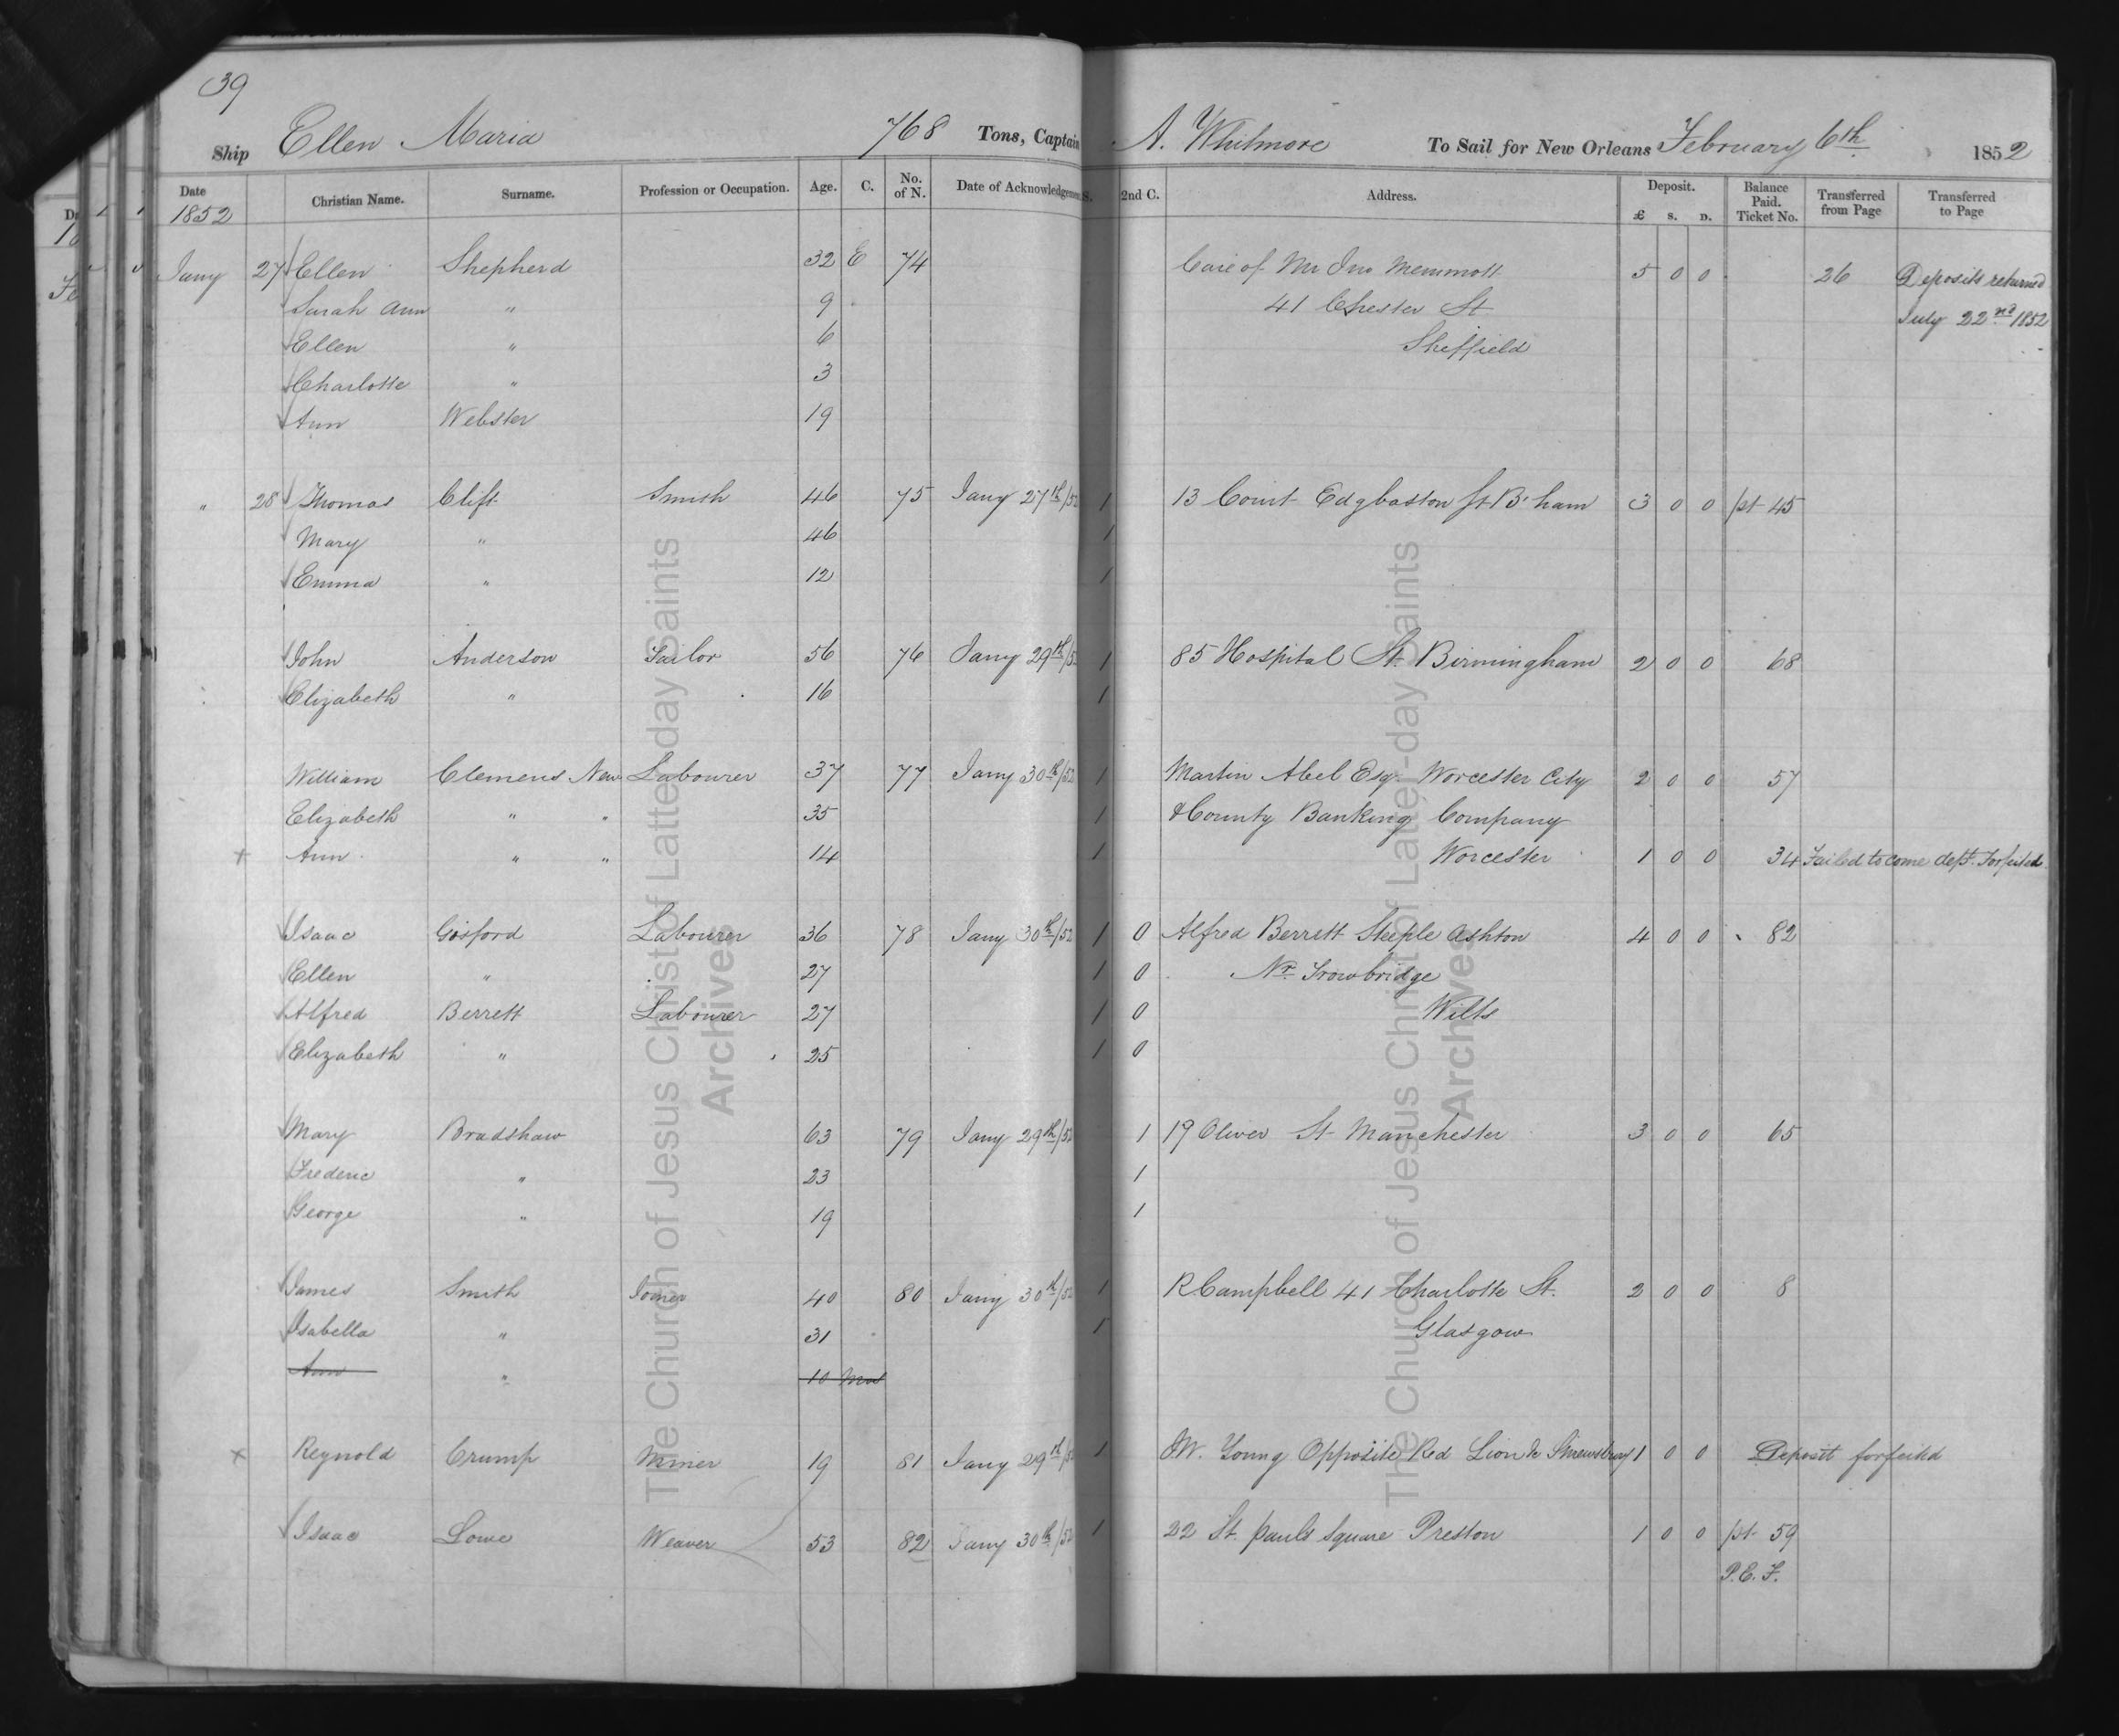 39
Ship Ellen Maria 768 Tons, Captain A. Whitmore To Sail for New Orleans February 6th 1852
Date Christian Name. Surname. Profession or Occupation. Age. C. No. of N. Date of Acknowledgement S. 2nd C. Address. Deposit. £ S. D. Balance Paid. Ticket No. Transferred from Page Transferred to Page
1852
Jany 27 Ellen Shepherd 32 E 74 Care of Mr Jno Memmott 5 0 0 26 Deposits returned
Sarah Ann " 9 41 Chester St July 22nd 1852
Ellen " 6 Sheffield
Charlotte " 3
Ann Webster 19
" 28 Thomas Clift Smith 46 75 Jany 27th/52 1 13 Court Edgbaston St B'ham 3 0 0 pt 45
Mary " 46 1
Emma " 12 1
John Anderson Tailor 56 76 Jany 29th/52 1 85 Hospital St. Birmingham 2 0 0 68
Elizabeth " 16 1
William Clemens New Labourer 37 77 Jany 30th/52 1 Martin Abel Esq. Worcester City 2 0 0 57
Elizabeth " " 35 1 & County Banking Company
+ Ann " " 14 1 Worcester 1 0 0 34 Failed to come dept. Forfeited
Isaac Gosford Labourer 36 78 Jany 30th/52 1 0 Alfred Berrett Steeple Ashton 4 0 0 82
Ellen " 27 1 0 Nr. Trowbridge
Alfred Berrett Labourer 27 1 0 Wilts
Elizabeth " 25 1 0
Mary Bradshaw 63 79 Jany 29th/52 1 19 Oliver St Manchester 3 0 0 65
Frederic " 23 1
George " 19 1
James Smith Joiner 40 80 Jany 30th/52 1 R Campbell 41 Charlotte St. 2 0 0 8
Isabella " 31 1 Glasgow
Ann " 10 Mos
+ Reynold Crump Miner 19 81 Jany 29th/52 1 J W. Young Opposite Red Lion Shrewsbury 1 0 0 Deposit forfeited
Isaac Lowe Weaver 53 82 Jany 30th/52 1 22 St. pauls Square Preston 1 0 0 pt 59
P.E.F.
The Church of Jesus Christ of Latter-day Saints
Archives
The Church of Jesus Christ of Latter-day Saints
Archives